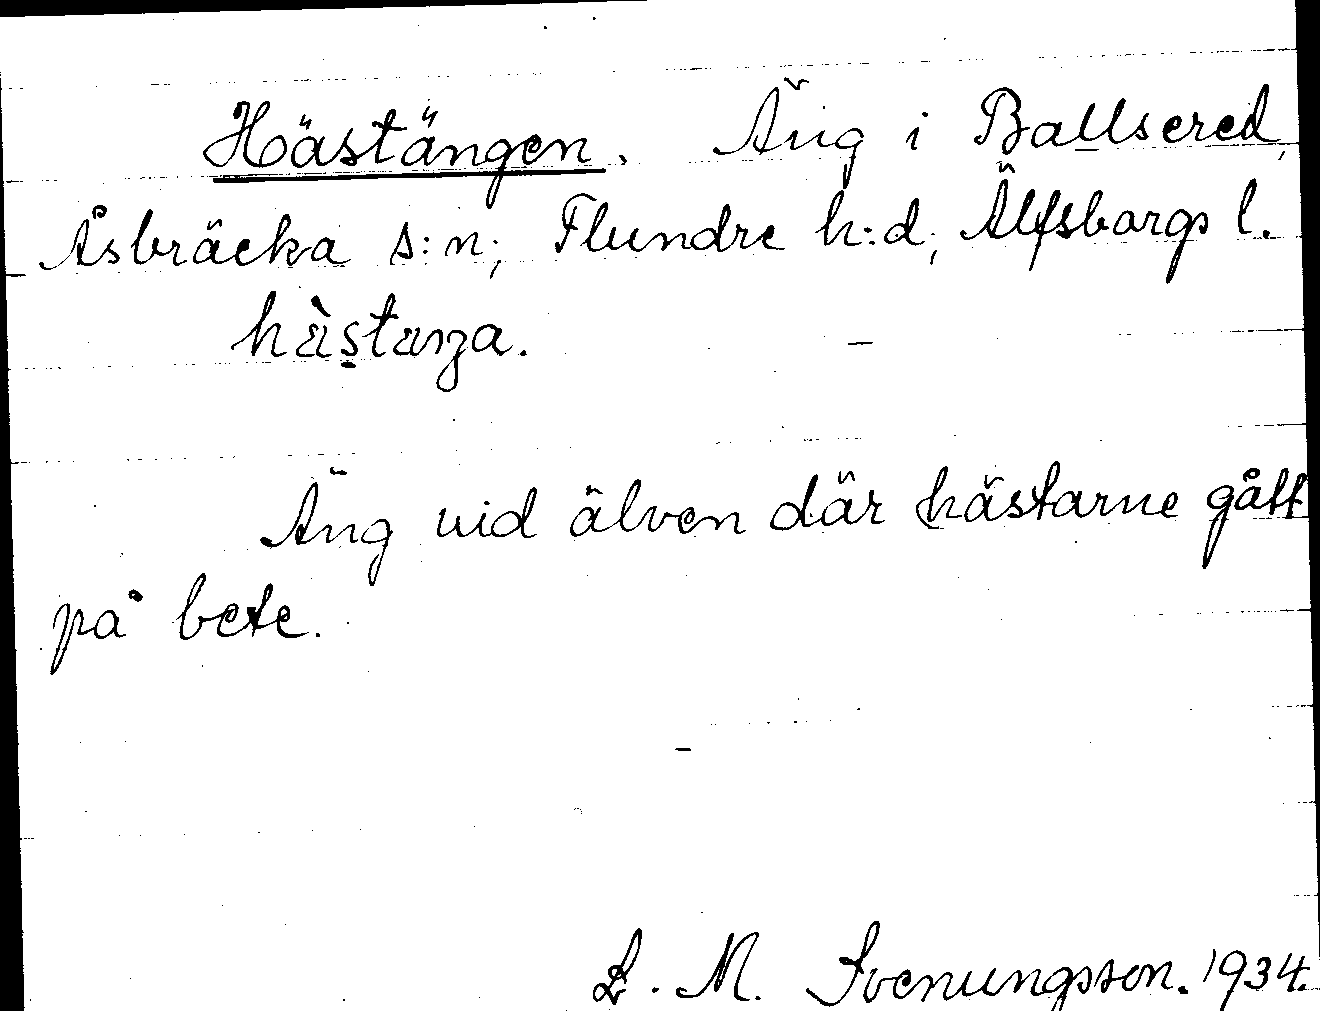 Hästängen. Äng i Ballsered,
Åsbräcka s:n; Flundre h:d, Älfsborgs l.
hàstæŋa.
Äng vid älven där hästarne gått
på bete.
L. M. Svenungsson. 1934.